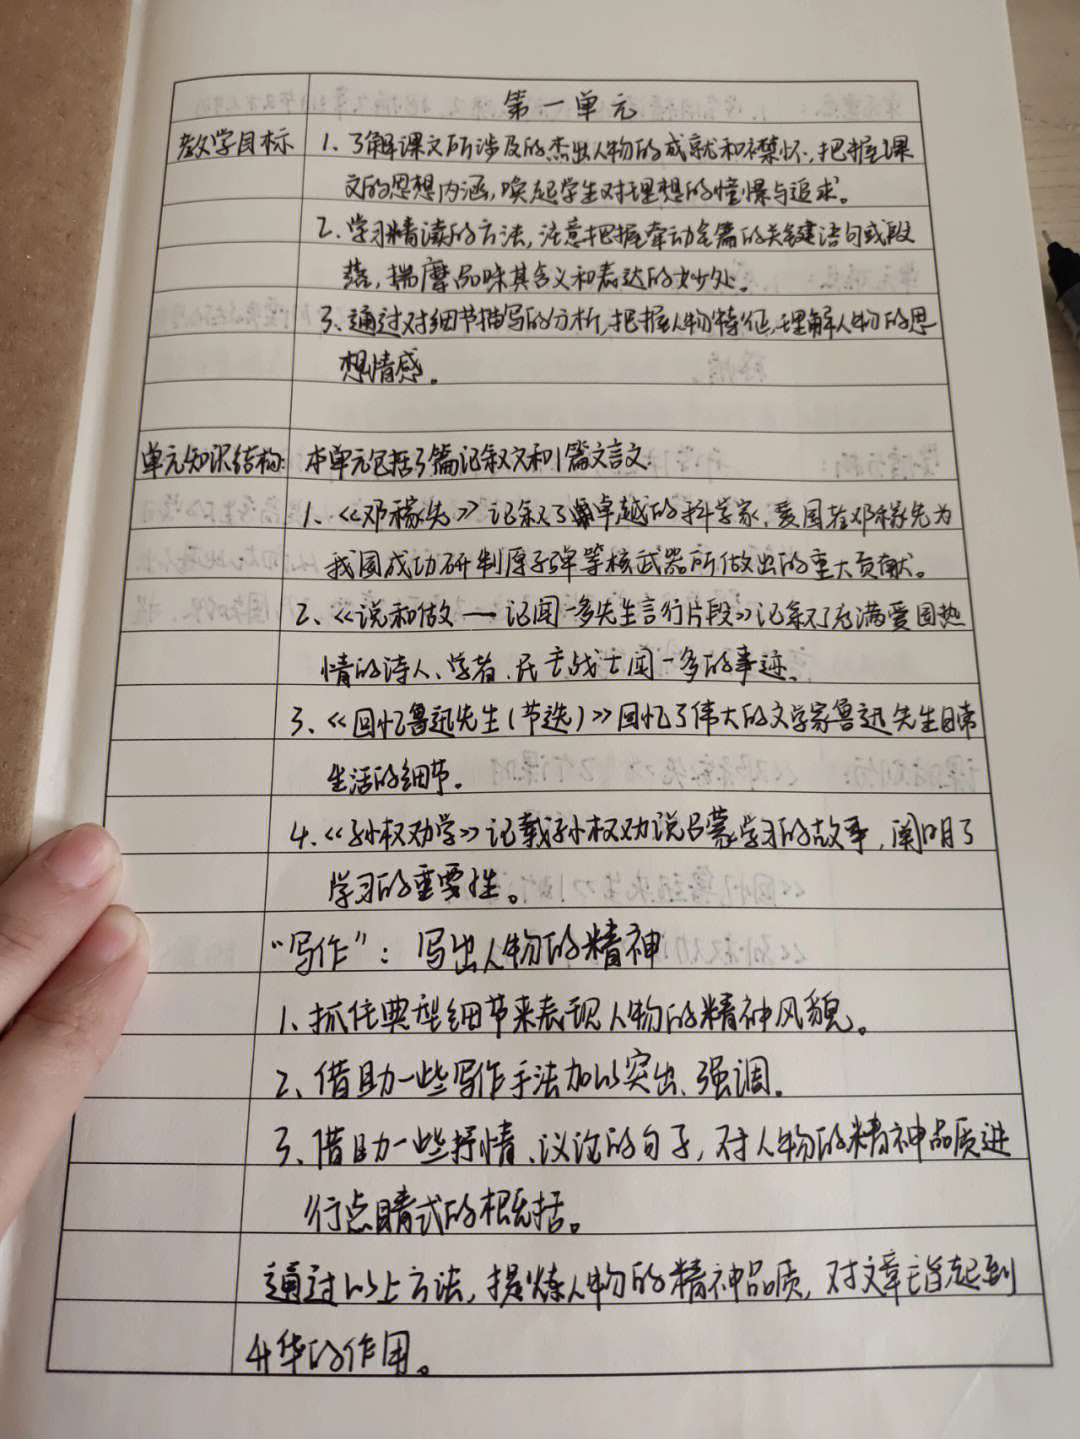 第一单元
教学目标 1、了解课文所涉及的杰出人物的成就和襟怀，把握课
文的思想内涵，唤起学生对理想的憧憬与追求。
2、学习精读的方法，注意把握牵动全篇的关键语句或段
落，揣摩品味其含义和表达的妙处。
3、通过对细节描写的分析，把握人物特征，理解人物的思
想情感。
单元知识结构： 本单元包括3篇记叙文和1篇文言文
1、《邓稼先》记叙了卓越的科学家，爱国者邓稼先为
我国成功研制原子弹等核武器所做出的重大贡献。
2、《说和做——记闻一多先生言行片段》记叙了充满爱国热
情的诗人、学者、民主战士闻一多的事迹。
3、《回忆鲁迅先生(节选)》回忆了伟大的文学家鲁迅先生日常
生活的细节。
4、《孙权劝学》记载孙权劝说吕蒙学习的故事，阐明了
学习的重要性。
“写作”：写出人物的精神
1、抓住典型细节来表现人物的精神风貌。
2、借助一些写作手法加以突出、强调。
3、借助一些抒情、议论的句子，对人物的精神品质进
行点睛式的概括。
通过以上方法，提炼人物的精神品质，对文章主旨起到
升华的作用。